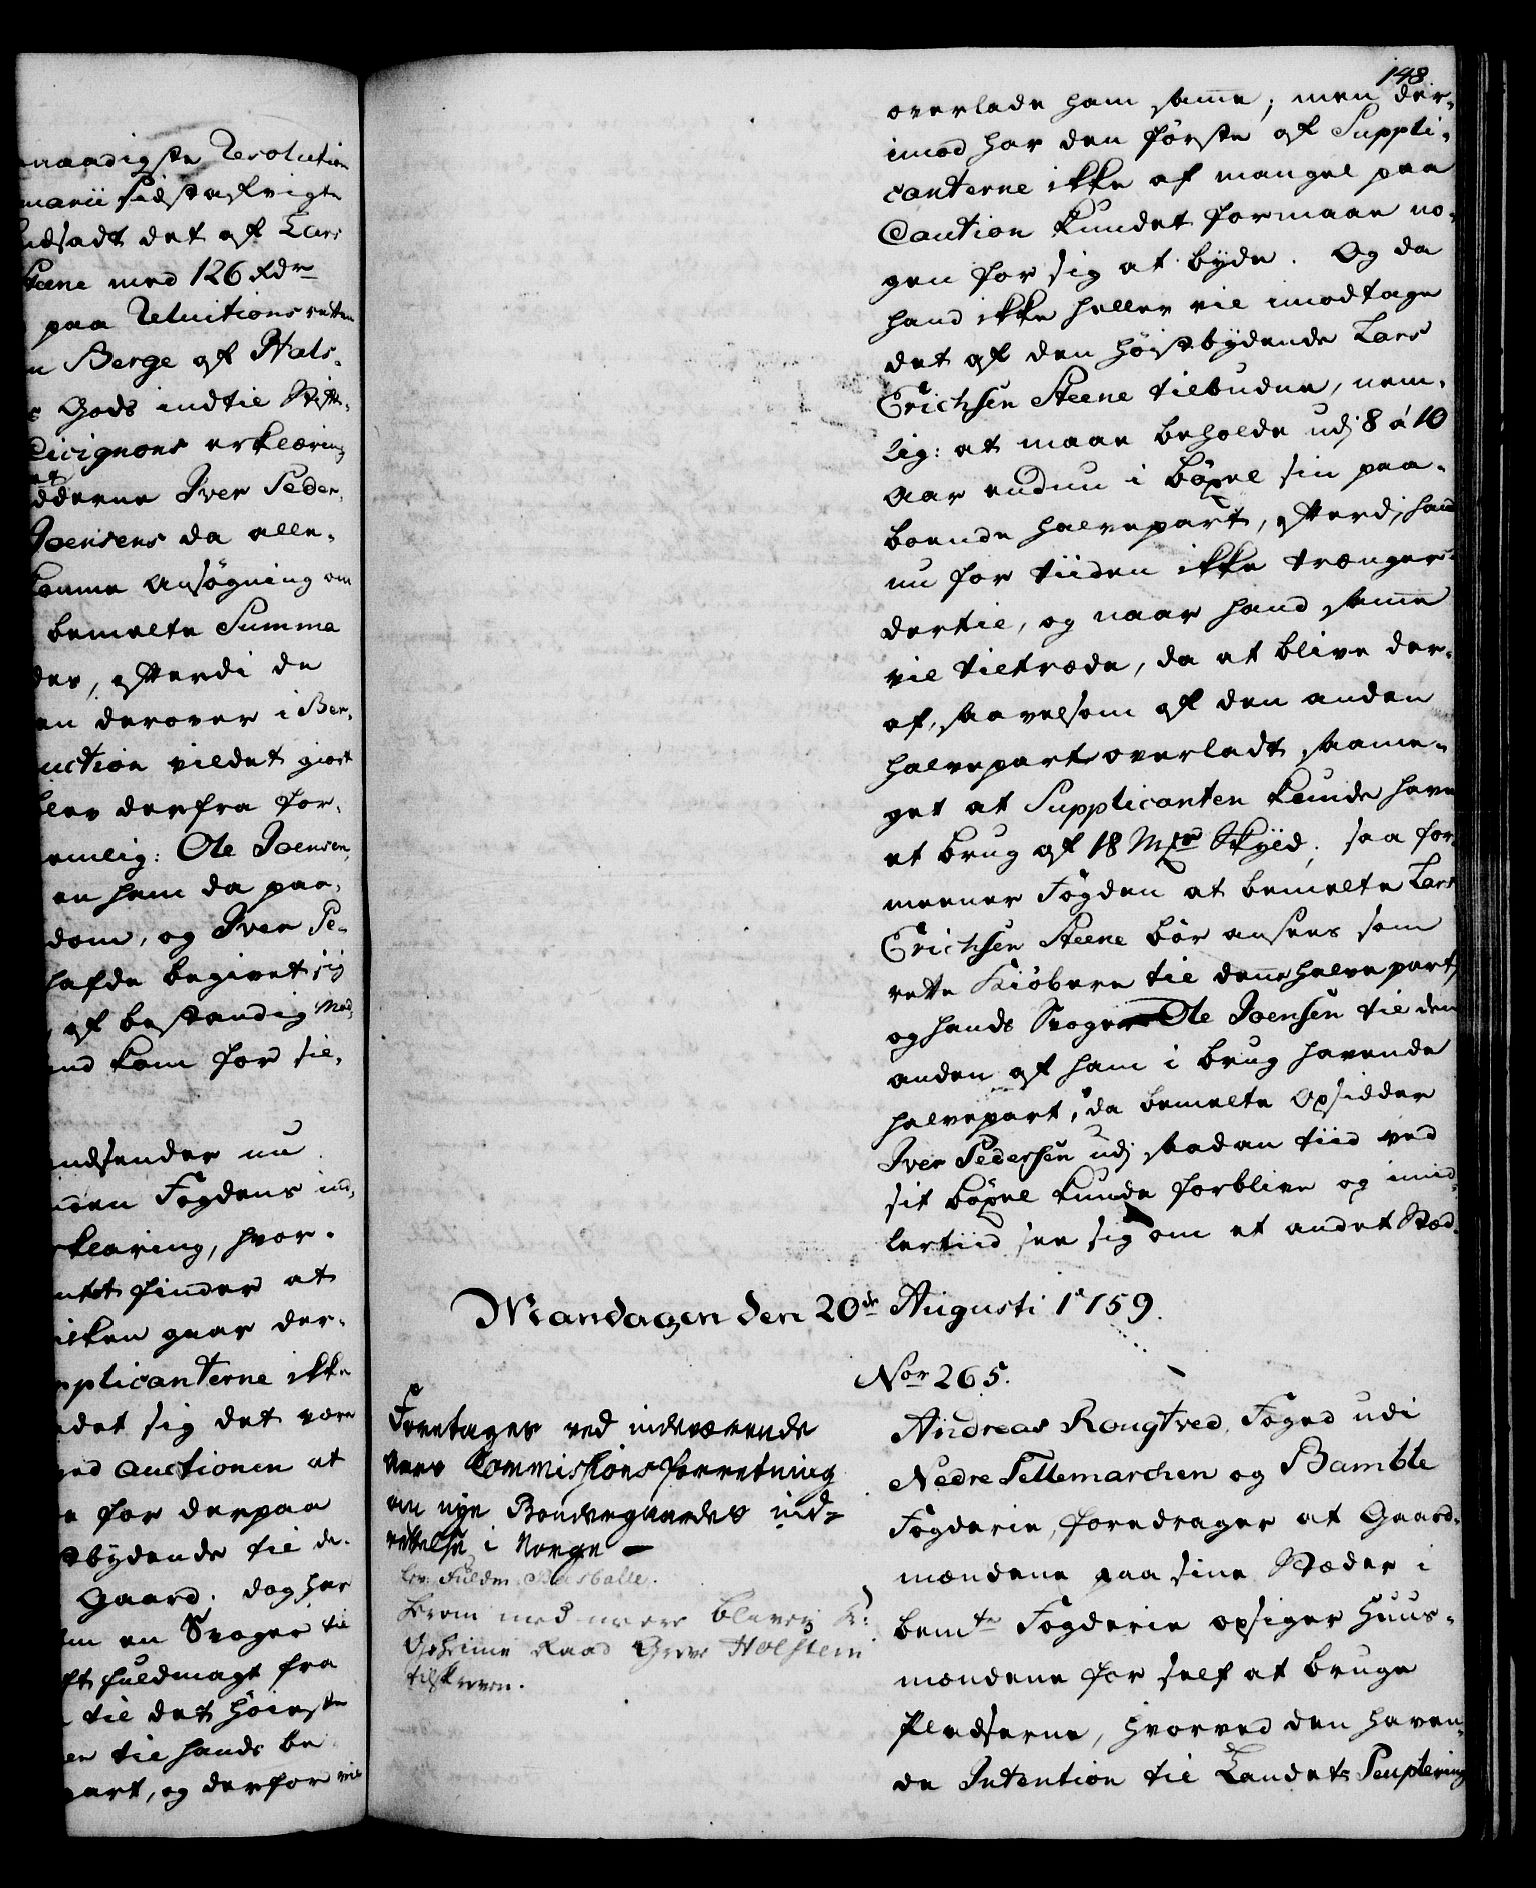 naadigste Resolution
narii sidstafvigte
udsadt det af Lars
Steene med 126 Rdr
paa Reluitionsretten
n Berge af Hals-
s Gods indtil Stift-
Cicignons erklæring
dderne Iver Peder-
Joensens da alle-
komne Ansøgning om
bemelte Summa
der, efterdi de
en derover i Ber-
uction vildet giort
blev derfra for-
emlig: Ole Joensen,
en ham da paa-
dom, og Iver Pe-
hafde begivet sig
af bestandig Mod
nd kom for sil-
indsender nu
den Fogdens ind-
rklæring, hvor-
ntet finder at
ilken gaar der-
pplicanterne ikke
det sig det være
ved auctionen at
e for derpaa
tbydende til de-
Gaard; dog har
en Svoger til
ft fuldmagt fra
til det høieste
er til hands be-
part, og derfor vil
148
overlade ham samme; men der-
imod har den første af Suppli-
canterne ikke af mangel paa
Caution kundet formaae no-
gen for sig at byde. Og da
hand ikke heller vil imodtage
det af den høistbydende Lars
Erichsen Steene tilbudne, nem-
lig: at maae beholde udj 8 á 10
Aar endnu i böxel sin paa-
boende halvepart, efterdj hand
nu for tiiden ikke trænger
dertil, og naar hand samme
vil tiltræde, da at blive der-
af, saavelsom af den anden
halvepart overladt saame-
get at Supplicanten kunde have
et brug af 18 Mkr Skyld; saa for-
meener Fogden at bemelte Lars
Erichsen Steene bör ansees som
rette Kiöbere til denne halvepart,
og hands Svoger Ole Joensen til den
anden af ham i brug havende
halvepart, da bemelte Opsidder
Iver Pedersen udj saadan tiid ved
sit böxel kunde forblive og imid-
lertiid see sig om et andet Stæd.
Mandagen den 20de Augusti 1759.
Nor 265.
Foretages ved indeværende
Aars Commissions forretning
om nye Bondegaardes ind-
rettelse i Norge
lev. Fuldm. Basballe.
herom med meere bleven Hr:
Geheime Raad Greve Holstein
tilskreven.
Andreas Rougtved, Foged udi
Nedre Tellemarchen og Bamble
Fogderie, foredrager at Gaard-
mændene paa sine Stæder i
bemte Fogderie opsiger Huus-
mændene for self at bruge
Pladserne, hvorved den haven-
de Intention til Landets Peuplering